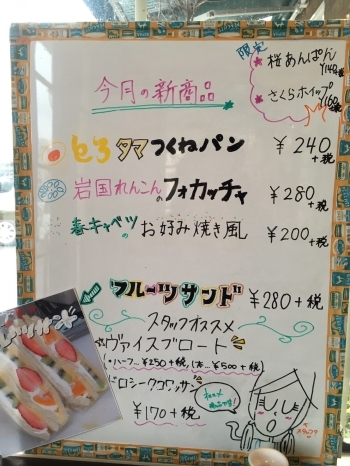 限定
桜あんぱん
¥140+税
さくらホイップ
¥160+税
今月の新商品
セサ タマつくねパン ¥240+税
岩国れんこんのフォカッチャ ¥280+税
春キャベツのお好み焼き風 ¥200+税
フルーツサンド ¥280+税
スタッフオススメ
ヴァイスブロート
(・ハーフ…¥250+税、1本…¥500+税)
ドロシークロワッサン
¥170+税
スタッフ